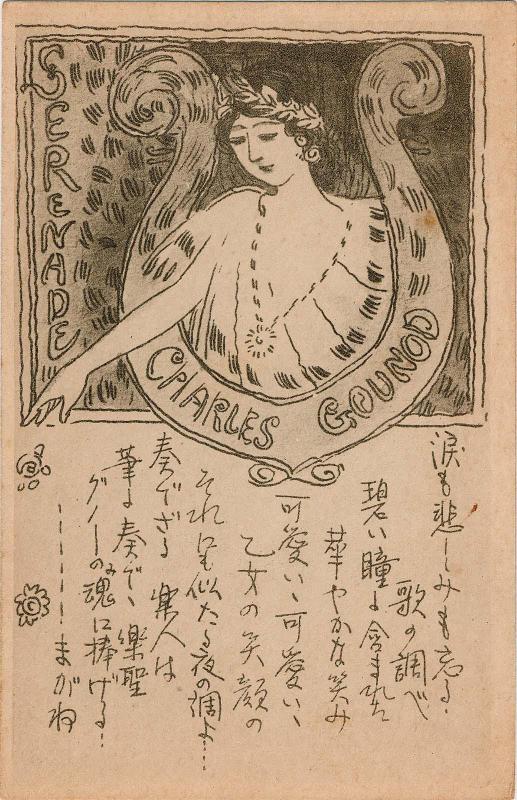 SERENADE
CHARLES GOUNOD
涙も悲しみも忘る、
歌の調べ
碧い瞳よ含まれた
華やかな笑み
可愛い、可愛い、
乙女の笑顔の
それにも似たる夜の調よ……
奏でざる 樂人は
筆よ奏で、樂聖
グノーの魂に捧げる……
………まがね